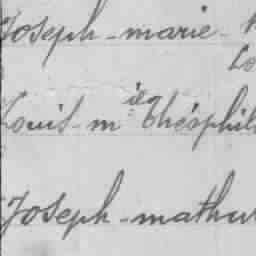 Joseph-marie
Louis-m ie Théophil
Joseph-mathur